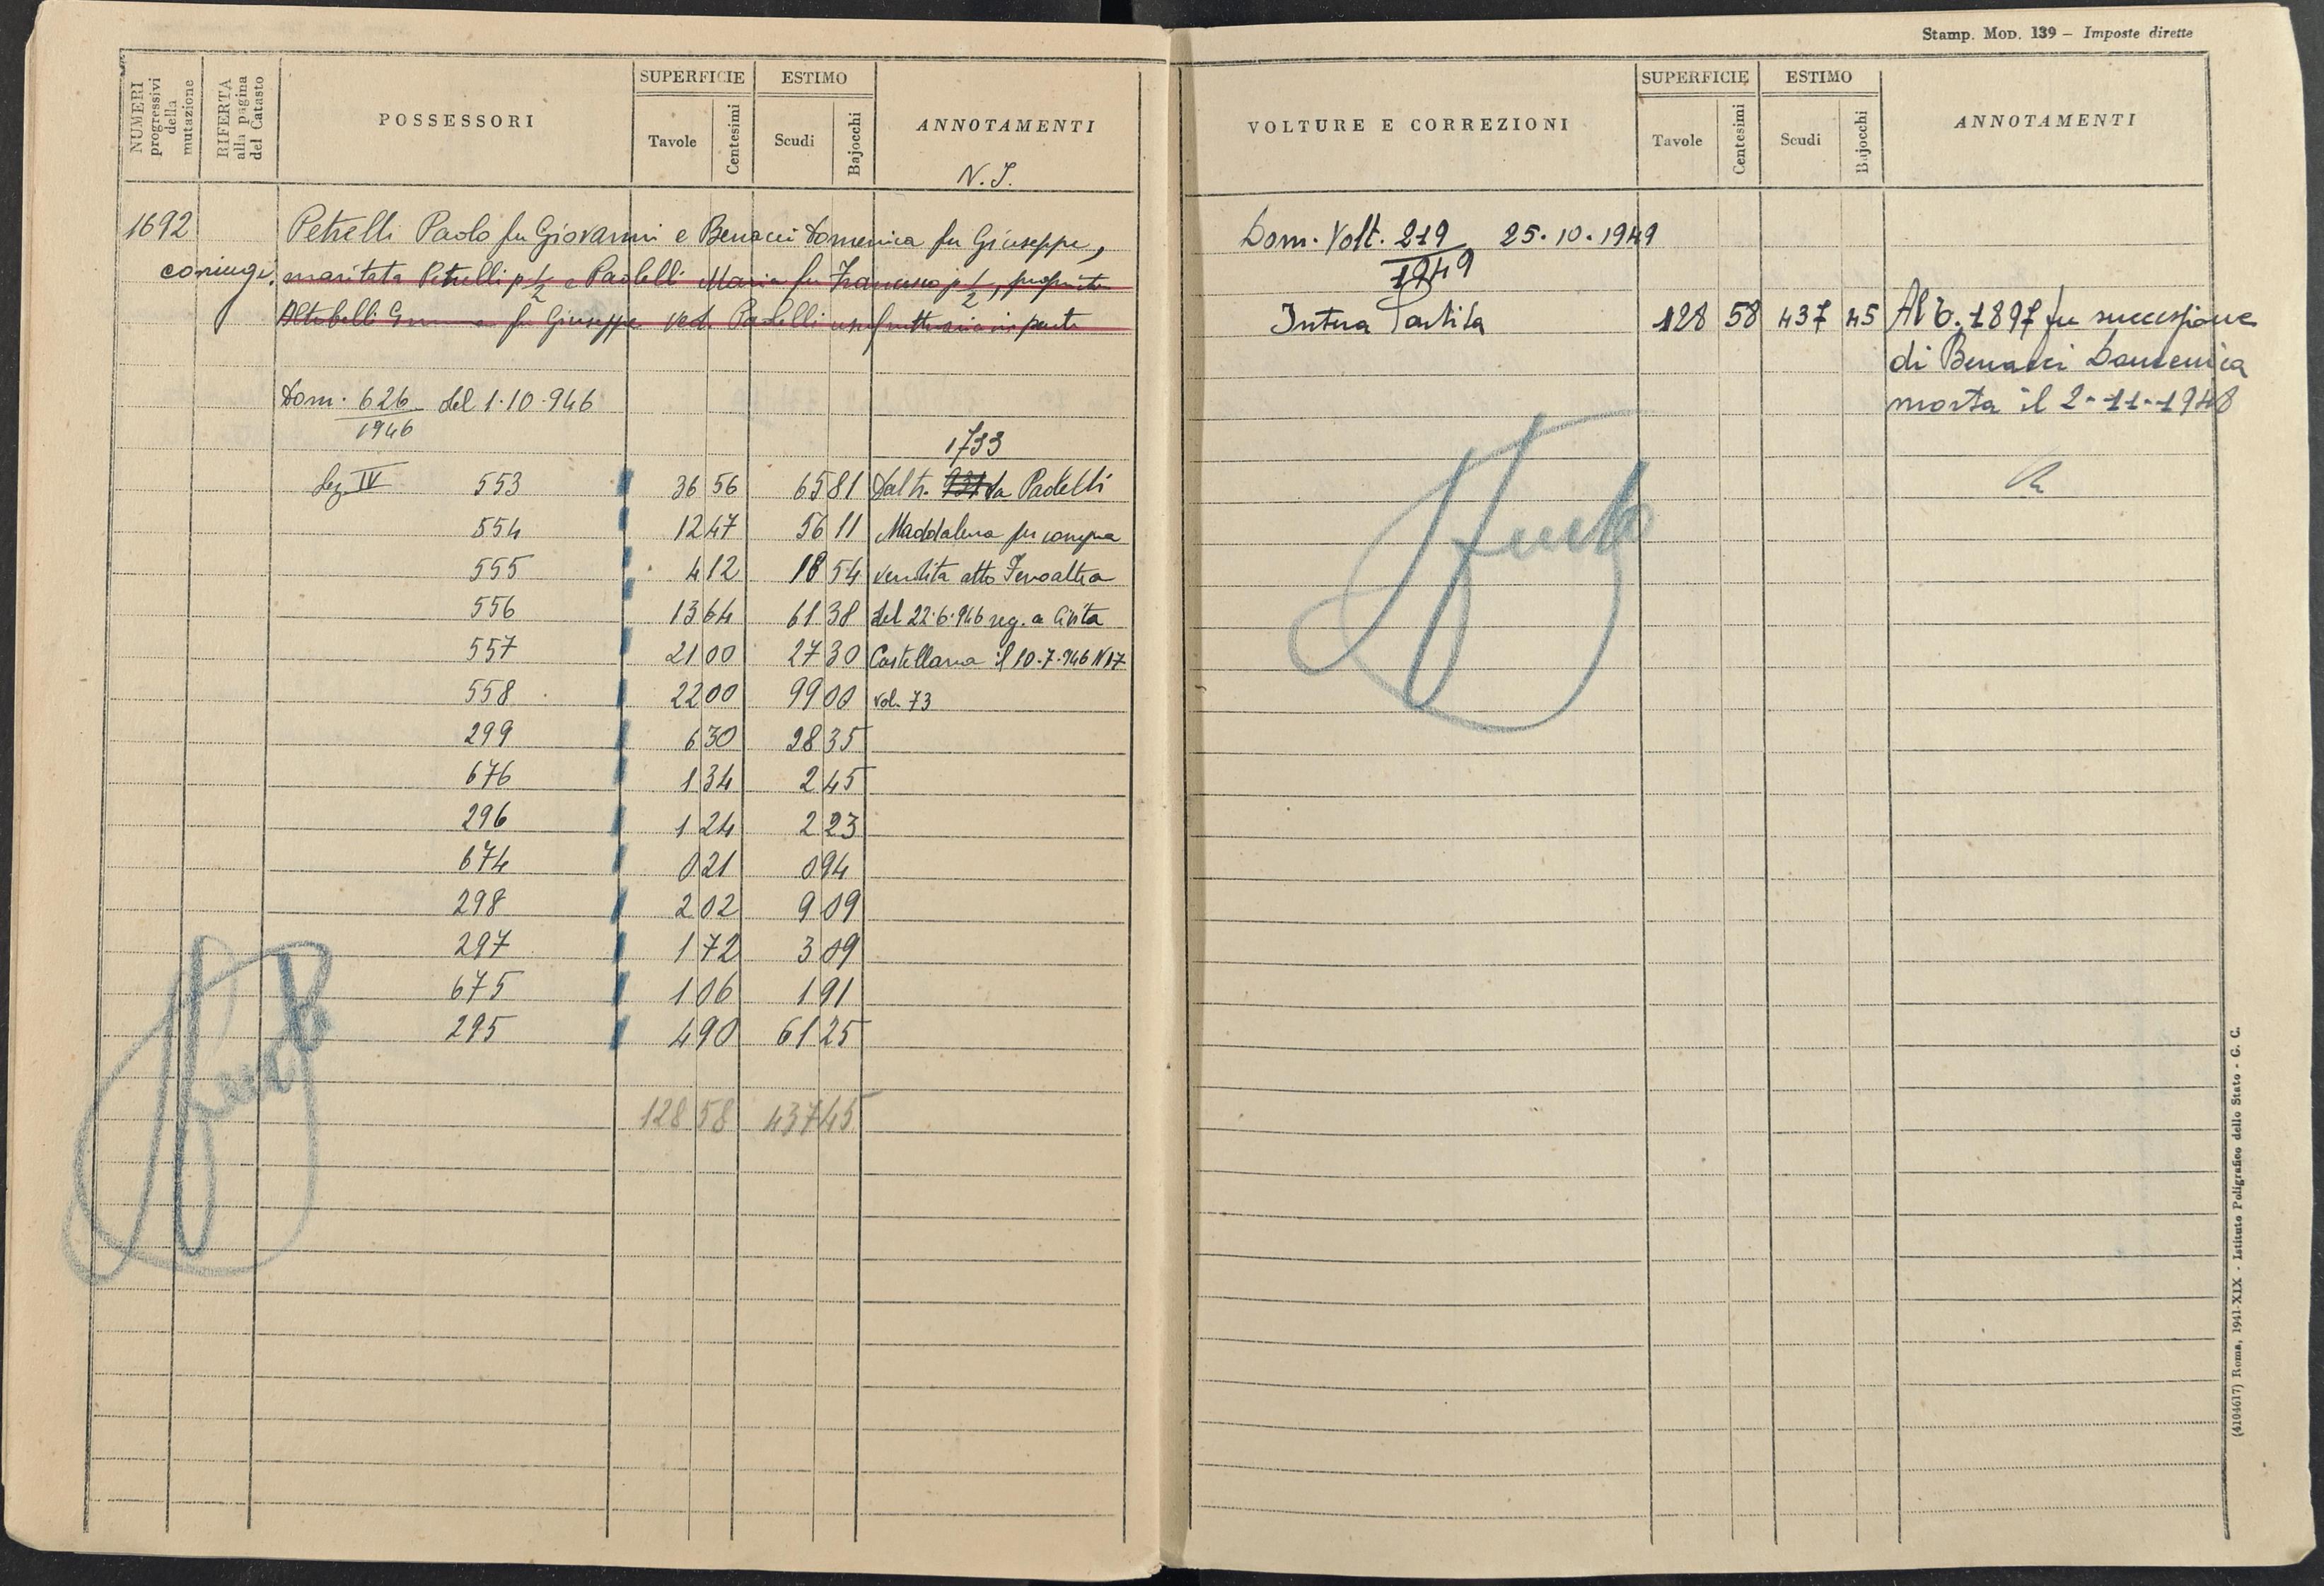 NUMERI progressivi della mutazione
RIFERTA alla pagina del Catasto
POSSESSORI
SUPERFICIE
Tavole
Centesimi
ESTIMO
Scudi
Bajocchi
ANNOTAMENTI
N. I.
1692 Petrelli Paolo fu Giovanni e Benacci Domenica fu Giuseppe,
coniugi. maritata Petrelli p 1/2 e Paolelli Maria fu Francesco p 1/2, proprietà
Altobelli fu Giuseppe ved. Paolelli usufruttuaria in parte
Dom. 626/1946 del 1.10.946
1733
Sez. IV 553 36 56 65 81 Dal n. da Paolelli
554 12 47 56 11 Maddalena per compra
555 4 12 18 54 vendita atto Fenoaltea
556 13 64 61 38 del 22.6.946 reg. a Civita
557 21 00 27 30 Castellana il 10.7.946 N 17
558 22 00 99 00 vol. 73
299 6 30 28 35
676 1 34 2 45
296 1 24 2 23
674 0 21 0 94
298 2 02 9 09
297 1 72 3 09
675 1 06 1 91
295 4 90 61 25
128 58 437 45
Stamp. Mod. 139 – Imposte dirette
VOLTURE E CORREZIONI
SUPERFICIE
Tavole
Centesimi
ESTIMO
Scudi
Bajocchi
ANNOTAMENTI
Dom. Volt. 219/1949 25.10.1949
Intera Partita 128 58 437 45 Al 1897 per successione
di Benacci Domenica
morta il 2-11-1948
(4104617) Roma, 1941-XIX - Istituto Poligrafico dello Stato - G. C.